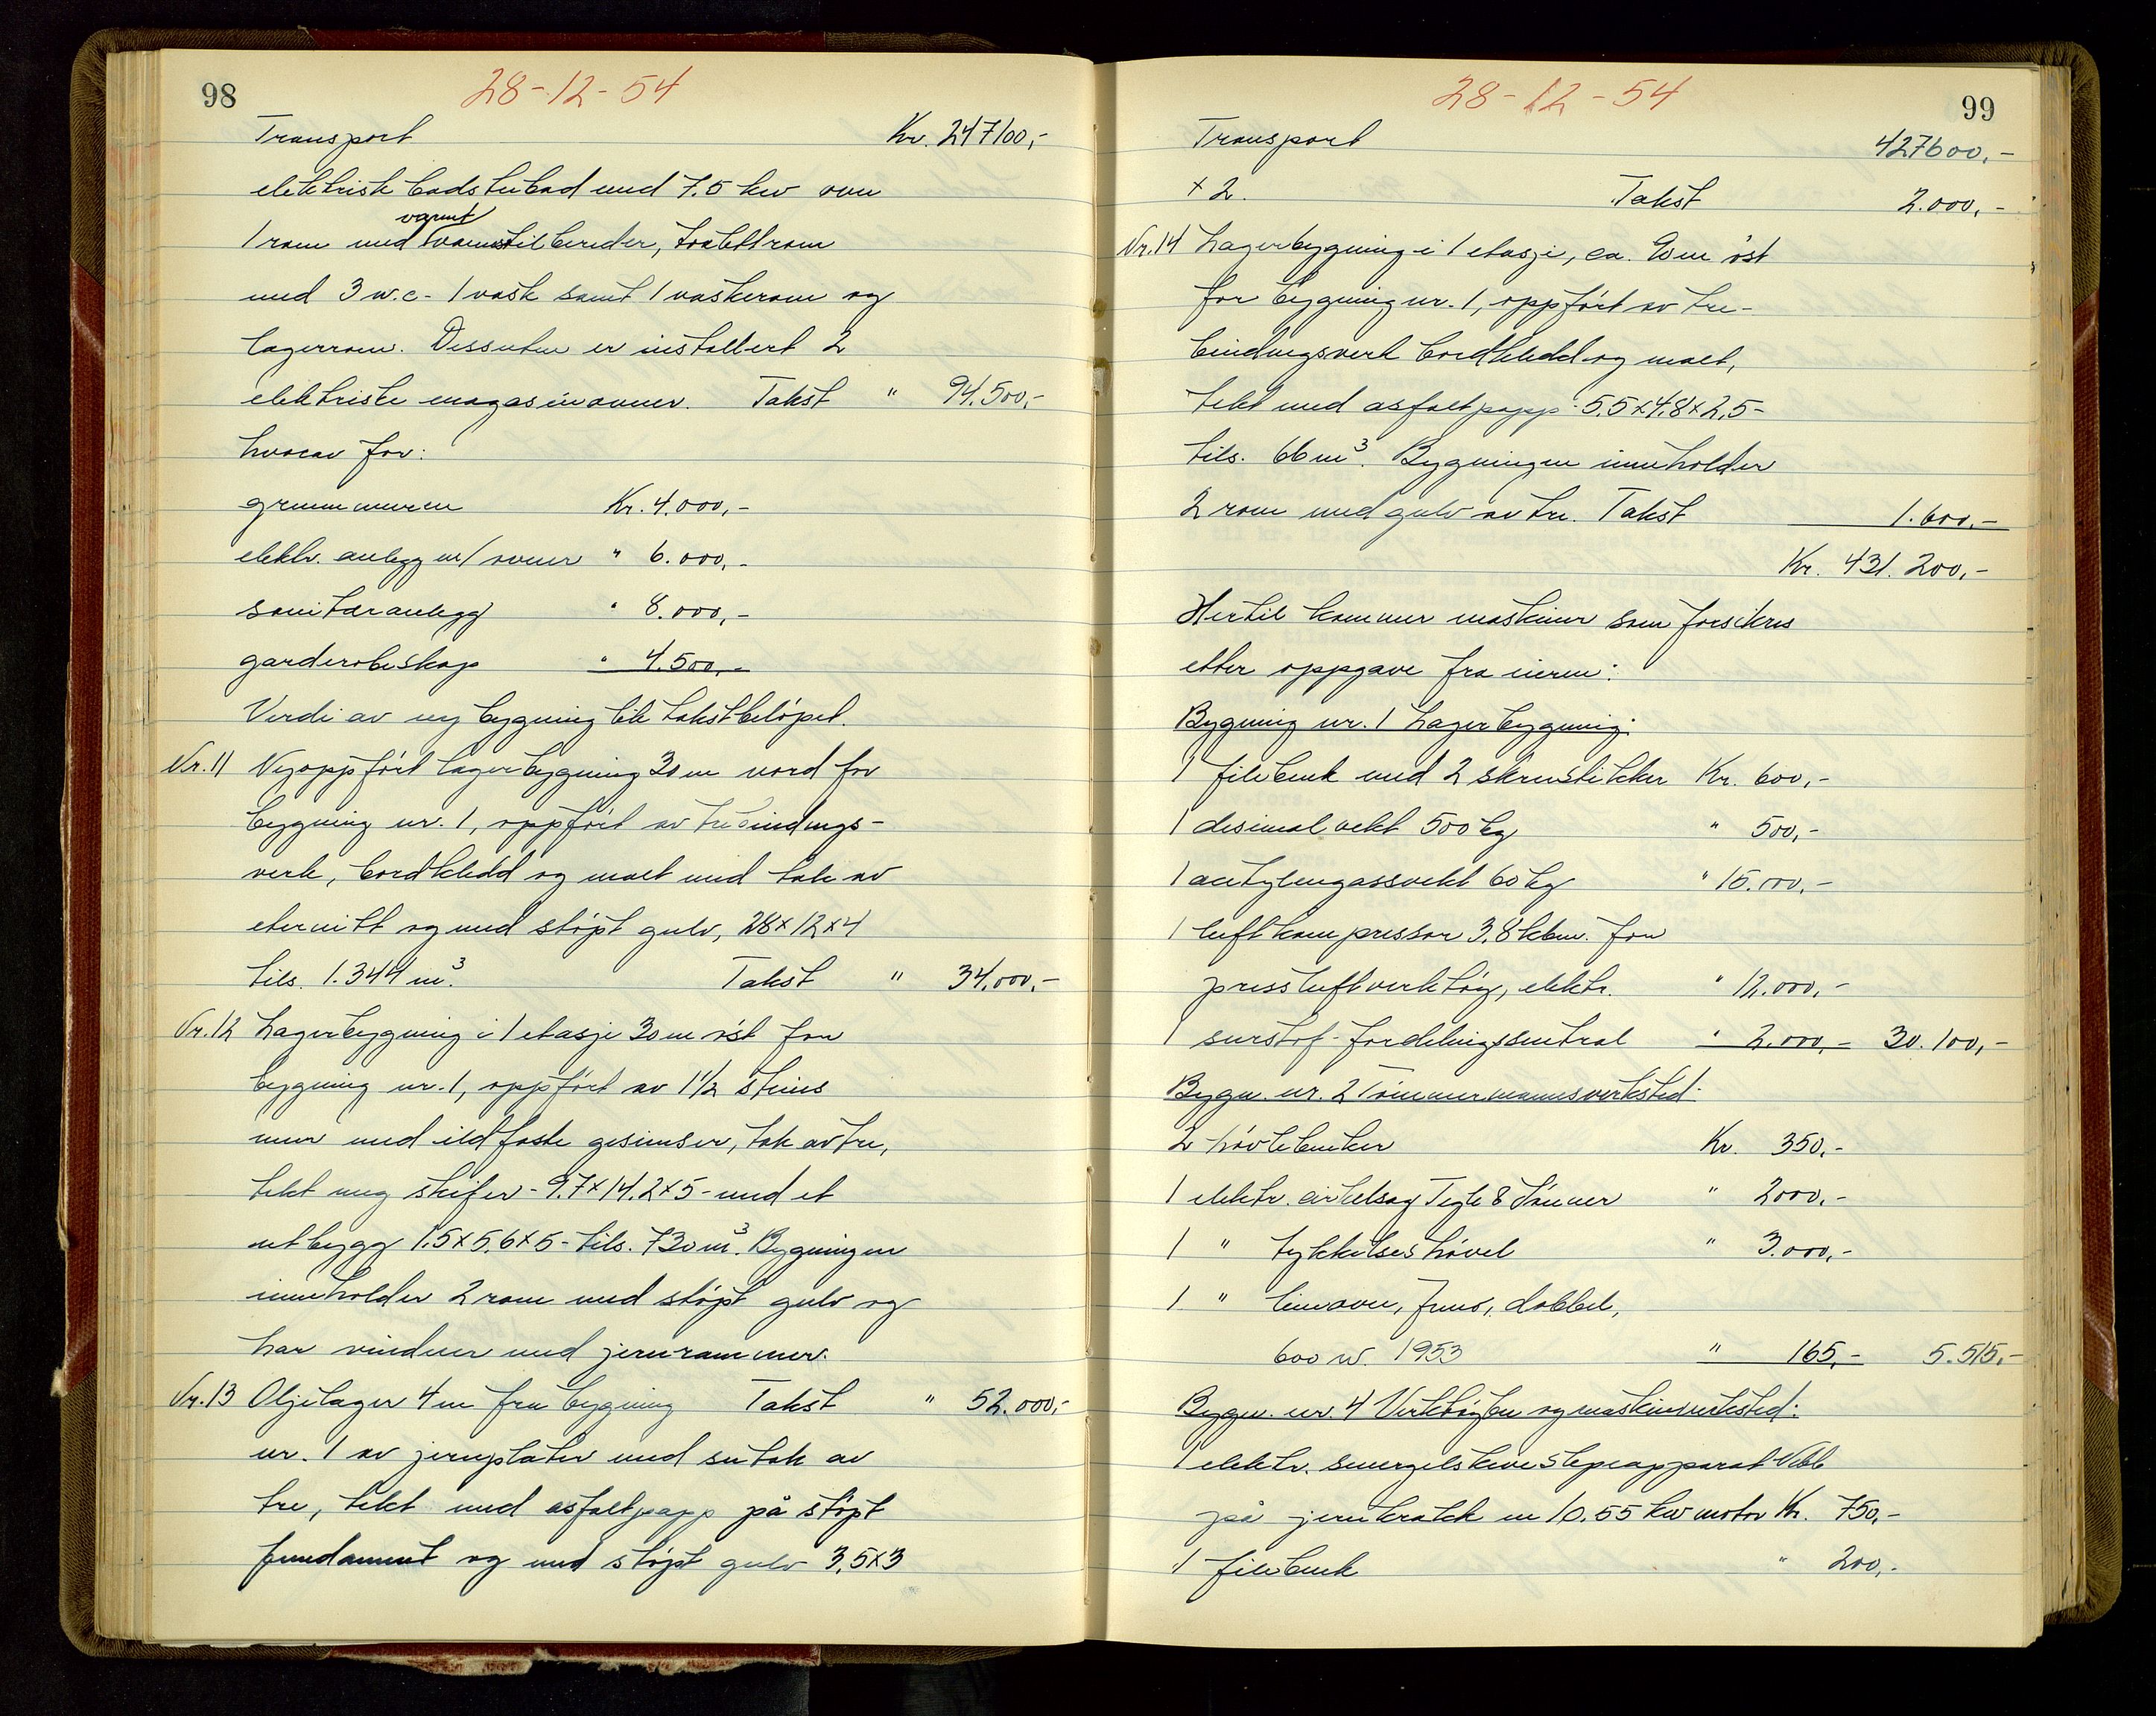 98
28-12-54
Transport Kr. 247100,-
elektrisk badstubad med 7.5 kw ovn
varmt
1 rom med vannstilbereder, toalettrom
med 3 w.c - 1 vask samt 1 vaskerom og
lagerrom. Dessuten er installert 2
elektriske magasinovner. Takst " 94.500,-
hvorav for:
grunnmuren Kr. 4.000,-
elektr. anlegg m/ ovner " 6.000,-
sanitæranlegg " 8.000,-
garderobeskap " 4.500,-
Verdi av ny bygning lik takstbeløpet.
Nr. 11 Nyoppført lagerbygning 30 m nord for
bygning nr. 1, oppført av trebindings-
verk, bordkledd og malt med tak av
eternitt og med støpt gulv, 28 x 12 x 4
tils. 1.344 m³. Takst " 34.000,-
Nr. 12 Lagerbygning i 1 etasje 30 m øst for
bygning nr. 1, oppført av 1½ steins
mur med ildfaste gesimser, tak av tre,
tekt meg skifer - 9.7 x 14.2 x 5 - med et
utbygg 1.5 x 5.6 x 5 - tils. 730 m³. Bygningen
inneholder 2 rom med støpt gulv og
har vinduer med jernrammer.
Nr. 13 Oljelager 4 m fra bygning Takst " 52.000,-
nr. 1 av jernplater med sutak av
tre, tekt med asfaltpapp på støpt
fundament og med støpt gulv 3,5 x 3
99
28-12-54
Transport 427600,-
x 2. Takst 2.000,-
Nr. 14 Lagerbygning i 1 etasje, ca. 90 m øst
for bygning nr. 1, oppført av tre-
bindingsverk bordkledd og malt,
tekt med asfaltpapp - 5.5 x 4.8 x 2,5 -
tils. 66 m³. Bygningen inneholder
2 rom med gulv av tre. Takst 1.600,-
Kr. 431.200,-
Hertil kommer maskiner som forsikres
etter oppgave fra eieren:
Bygning nr. 1 Lagerbygning:
1 filebenk med 2 skrustikker Kr. 600,-
1 desimalvekt 500 kg " 500,-
1 acetylengassvekt 60 kg " 15.000,-
1 luftkompressor 3,8 kbm. for
pressluftverktøy, elektr. " 12.000,-
1 surstof-fordelingssentral " 2.000,- 30.100,-
Bygn. nr. 2 Tømmermannsverksted:
2 høvlebenker Kr. 350,-
1 elektr. cirkelsag Tegle & Sønner " 2000,-
1 " tykkelseshøvel " 3.000,-
1 " limovn, Juno, dobbel,
600 w. 1953 " 165,- 5.515,-
Bygn. nr. 4 Verktøybu og maskinverksted:
1 elektr. smergelskive slipeapparat
på jernkrakk m/0.55 kw motor Kr. 750,-
1 filebenk " 200,-